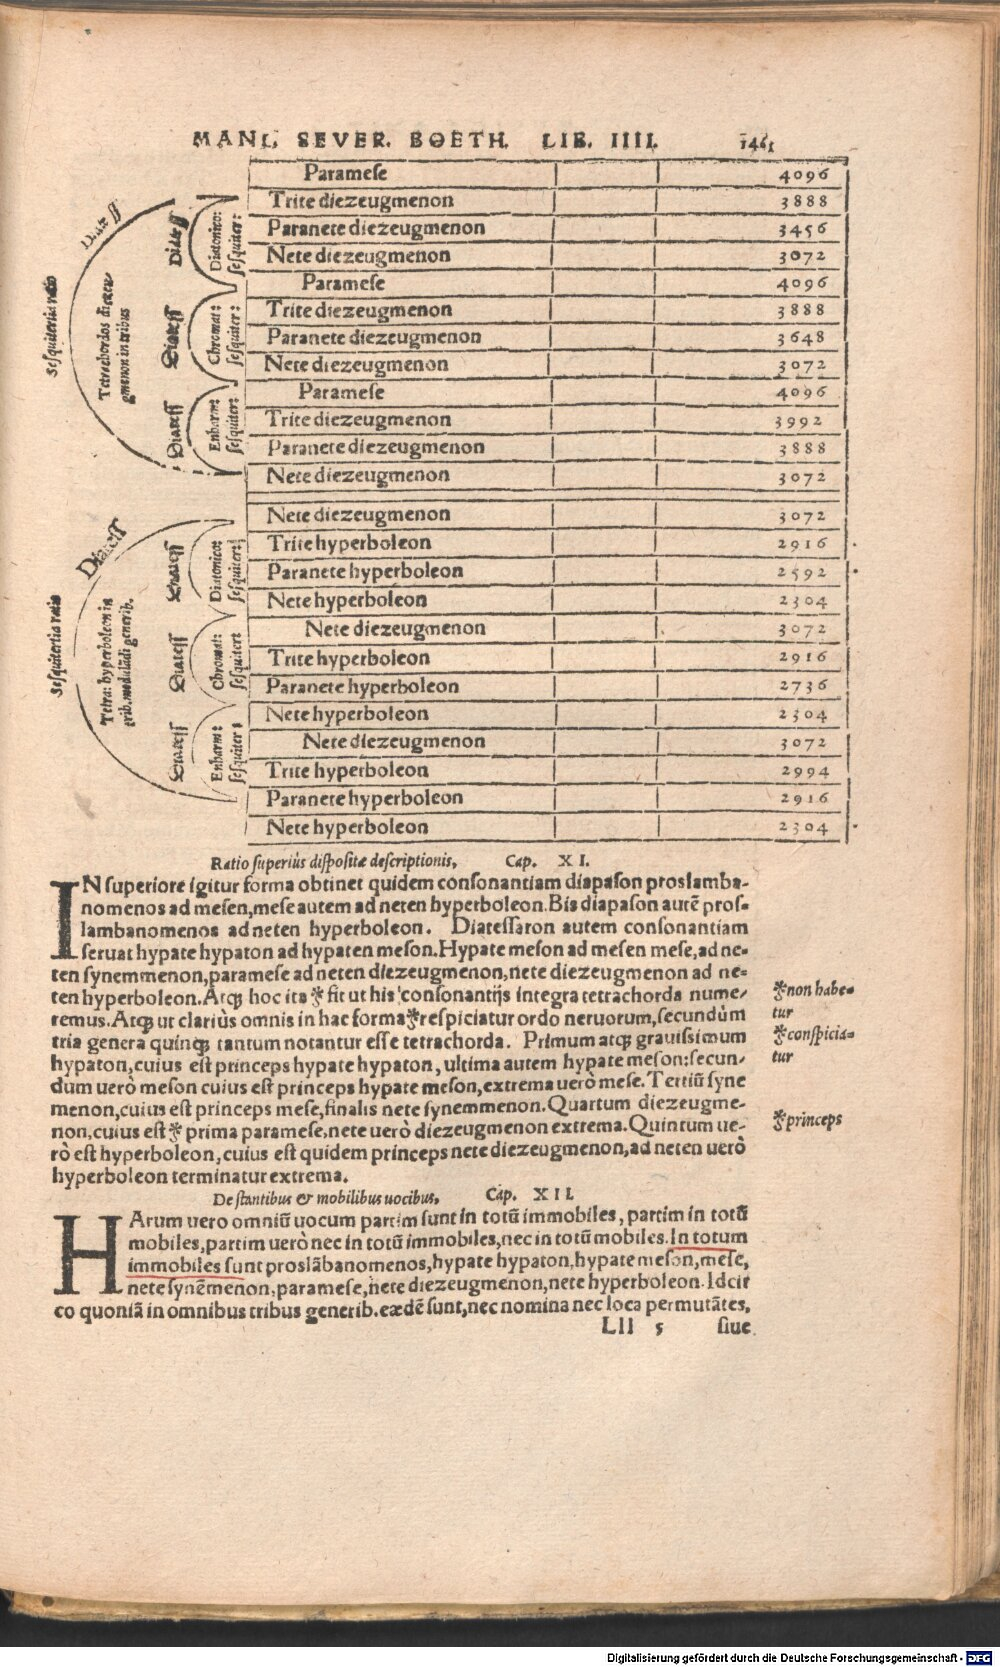 MANL. SEVER. BOETH. LIB. IIII.
Paramese 4096
Trite diezeugmenon 3888
Paranete diezeugmenon 3456
Nete diezeugmenon 3072
Paramese 4096
Trite diezeugmenon 3888
Paranete diezeugmenon 3648
Nete diezeugmenon 3072
Paramese 4096
Trite diezeugmenon 3992
Paranete diezeugmenon 3888
Nete diezeugmenon 3072
Sesquitertia ratio
Diatess
Tetrachordos diezeu
gmenon in tribus
Diatess
Diatonico:
sesquiter:
Diatess
Chromat:
sesquiter:
Diatess
Enharm:
sesquiter:
Nete diezeugmenon 3072
Trite hyperboleon 2916
Paranete hyperboleon 2592
Nete hyperboleon 2304
Nete diezeugmenon 3072
Trite hyperboleon 2916
Paranete hyperboleon 2736
Nete hyperboleon 2304
Nete diezeugmenon 3072
Trite hyperboleon 2994
Paranete hyperboleon 2916
Nete hyperboleon 2304
Sesquitertia ratio
Diatess
Tetra: hyperboleon in
erib. modulãdi generib.
Diatess
Diatonico:
sesquiter:
Diatess
Chromat:
sesquiter:
Diatess
Enharm:
sesquiter:
Ratio superiùs dispositæ descriptionis, Cap. XI.
IN superiore igitur forma obtinet quidem consonantiam diapason proslamba-
nomenos ad mesen, mese autem ad neten hyperboleon. Bis diapason autẽ pros-
lambanomenos ad neten hyperboleon. Diatessaron autem consonantiam
seruat hypate hypaton ad hypaten meson. Hypate meson ad mesen mese, ad ne-
ten synemmenon, paramese ad neten diezeugmenon, nete diezeugmenon ad ne-
ten hyperboleon. Atq; hoc ita * fit ut his consonantijs integra tetrachorda nume-
remus. Atq; ut clariùs omnis in hac forma * respiciatur ordo neruorum, secundùm
tria genera quinq; tantum notantur esse tetrachorda. Primum atq; grauissimum
hypaton, cuius est princeps hypate hypaton, ultima autem hypate meson: secun-
dum uerò meson cuius est princeps hypate meson, extrema uerò mese. Tertiũ syne
menon, cuius est princeps mese, finalis nete synemmenon. Quartum diezeugme-
non, cuius est * prima paramese, nete uerò diezeugmenon extrema. Quintum ue-
rò est hyperboleon, cuius est quidem princeps nete diezeugmenon, ad neten uerò
hyperboleon terminatur extrema.
* non habe-
tur
* conspicia-
tur
* princeps
De stantibus & mobilibus uocibus, Cap. XII.
HArum uero omniũ uocum partim sunt in totũ immobiles, partim in totũ
mobiles, partim uerò nec in totũ immobiles, nec in totũ mobiles. In totum
immobiles sunt proslãbanomenos, hypate hypaton, hypate meson, mese,
nete synẽmenon, paramese, nete diezeugmenon, nete hyperboleon. Idcir
co quoniã in omnibus tribus generib. eædẽ sunt, nec nomina nec loca permutãtes,
LII 5 siue
Digitalisierung gefördert durch die Deutsche Forschungsgemeinschaft - DFG